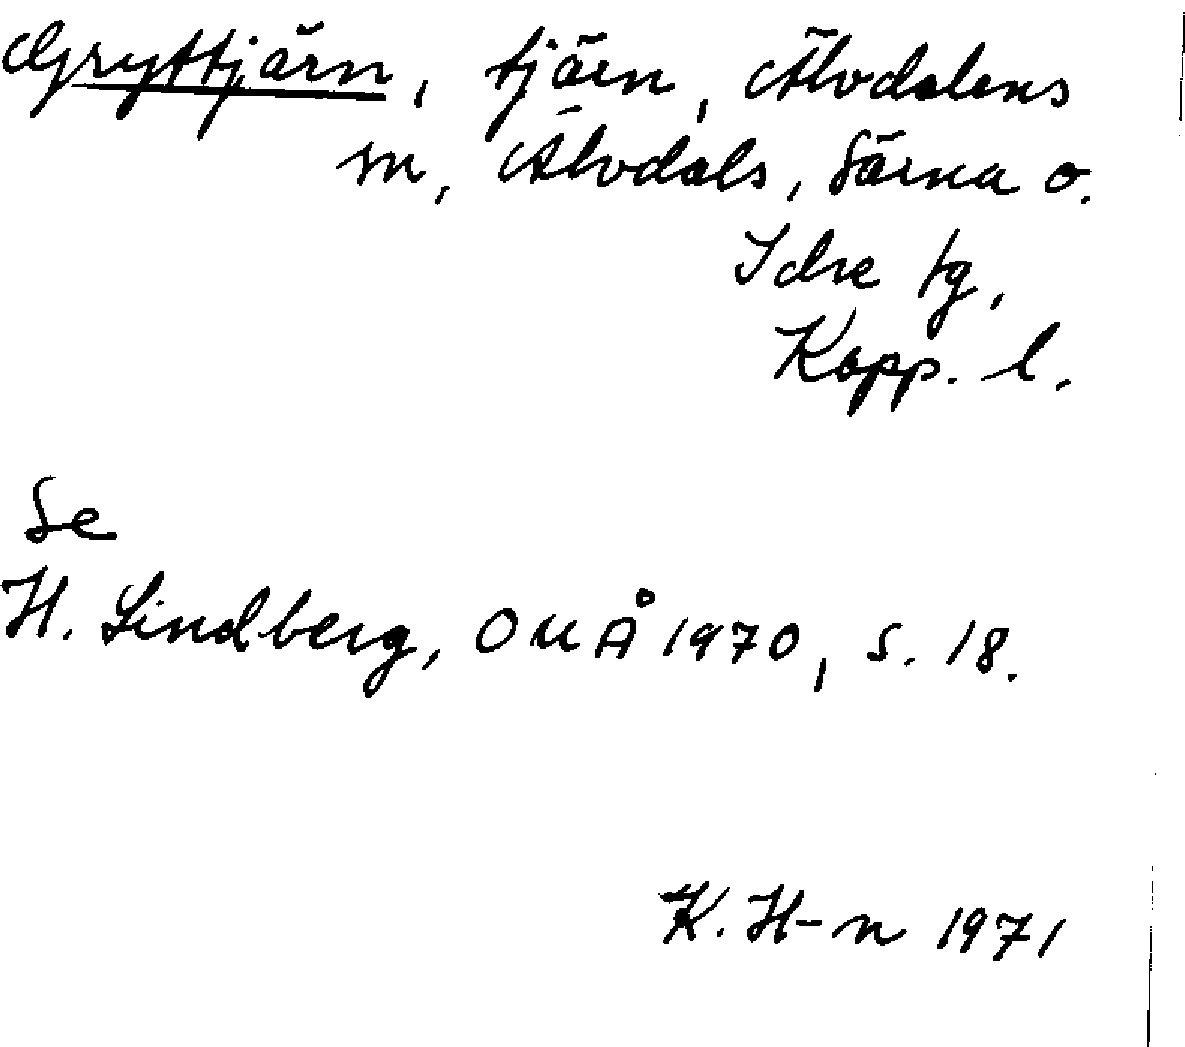 Gryttjärn, tjärn, Älvdalens
m, Älvdals, Särna o.
Idre tg,
Kopp. l.
Se
H. Lindberg, OUÅ 1970, s. 18.
K. H-n 1971